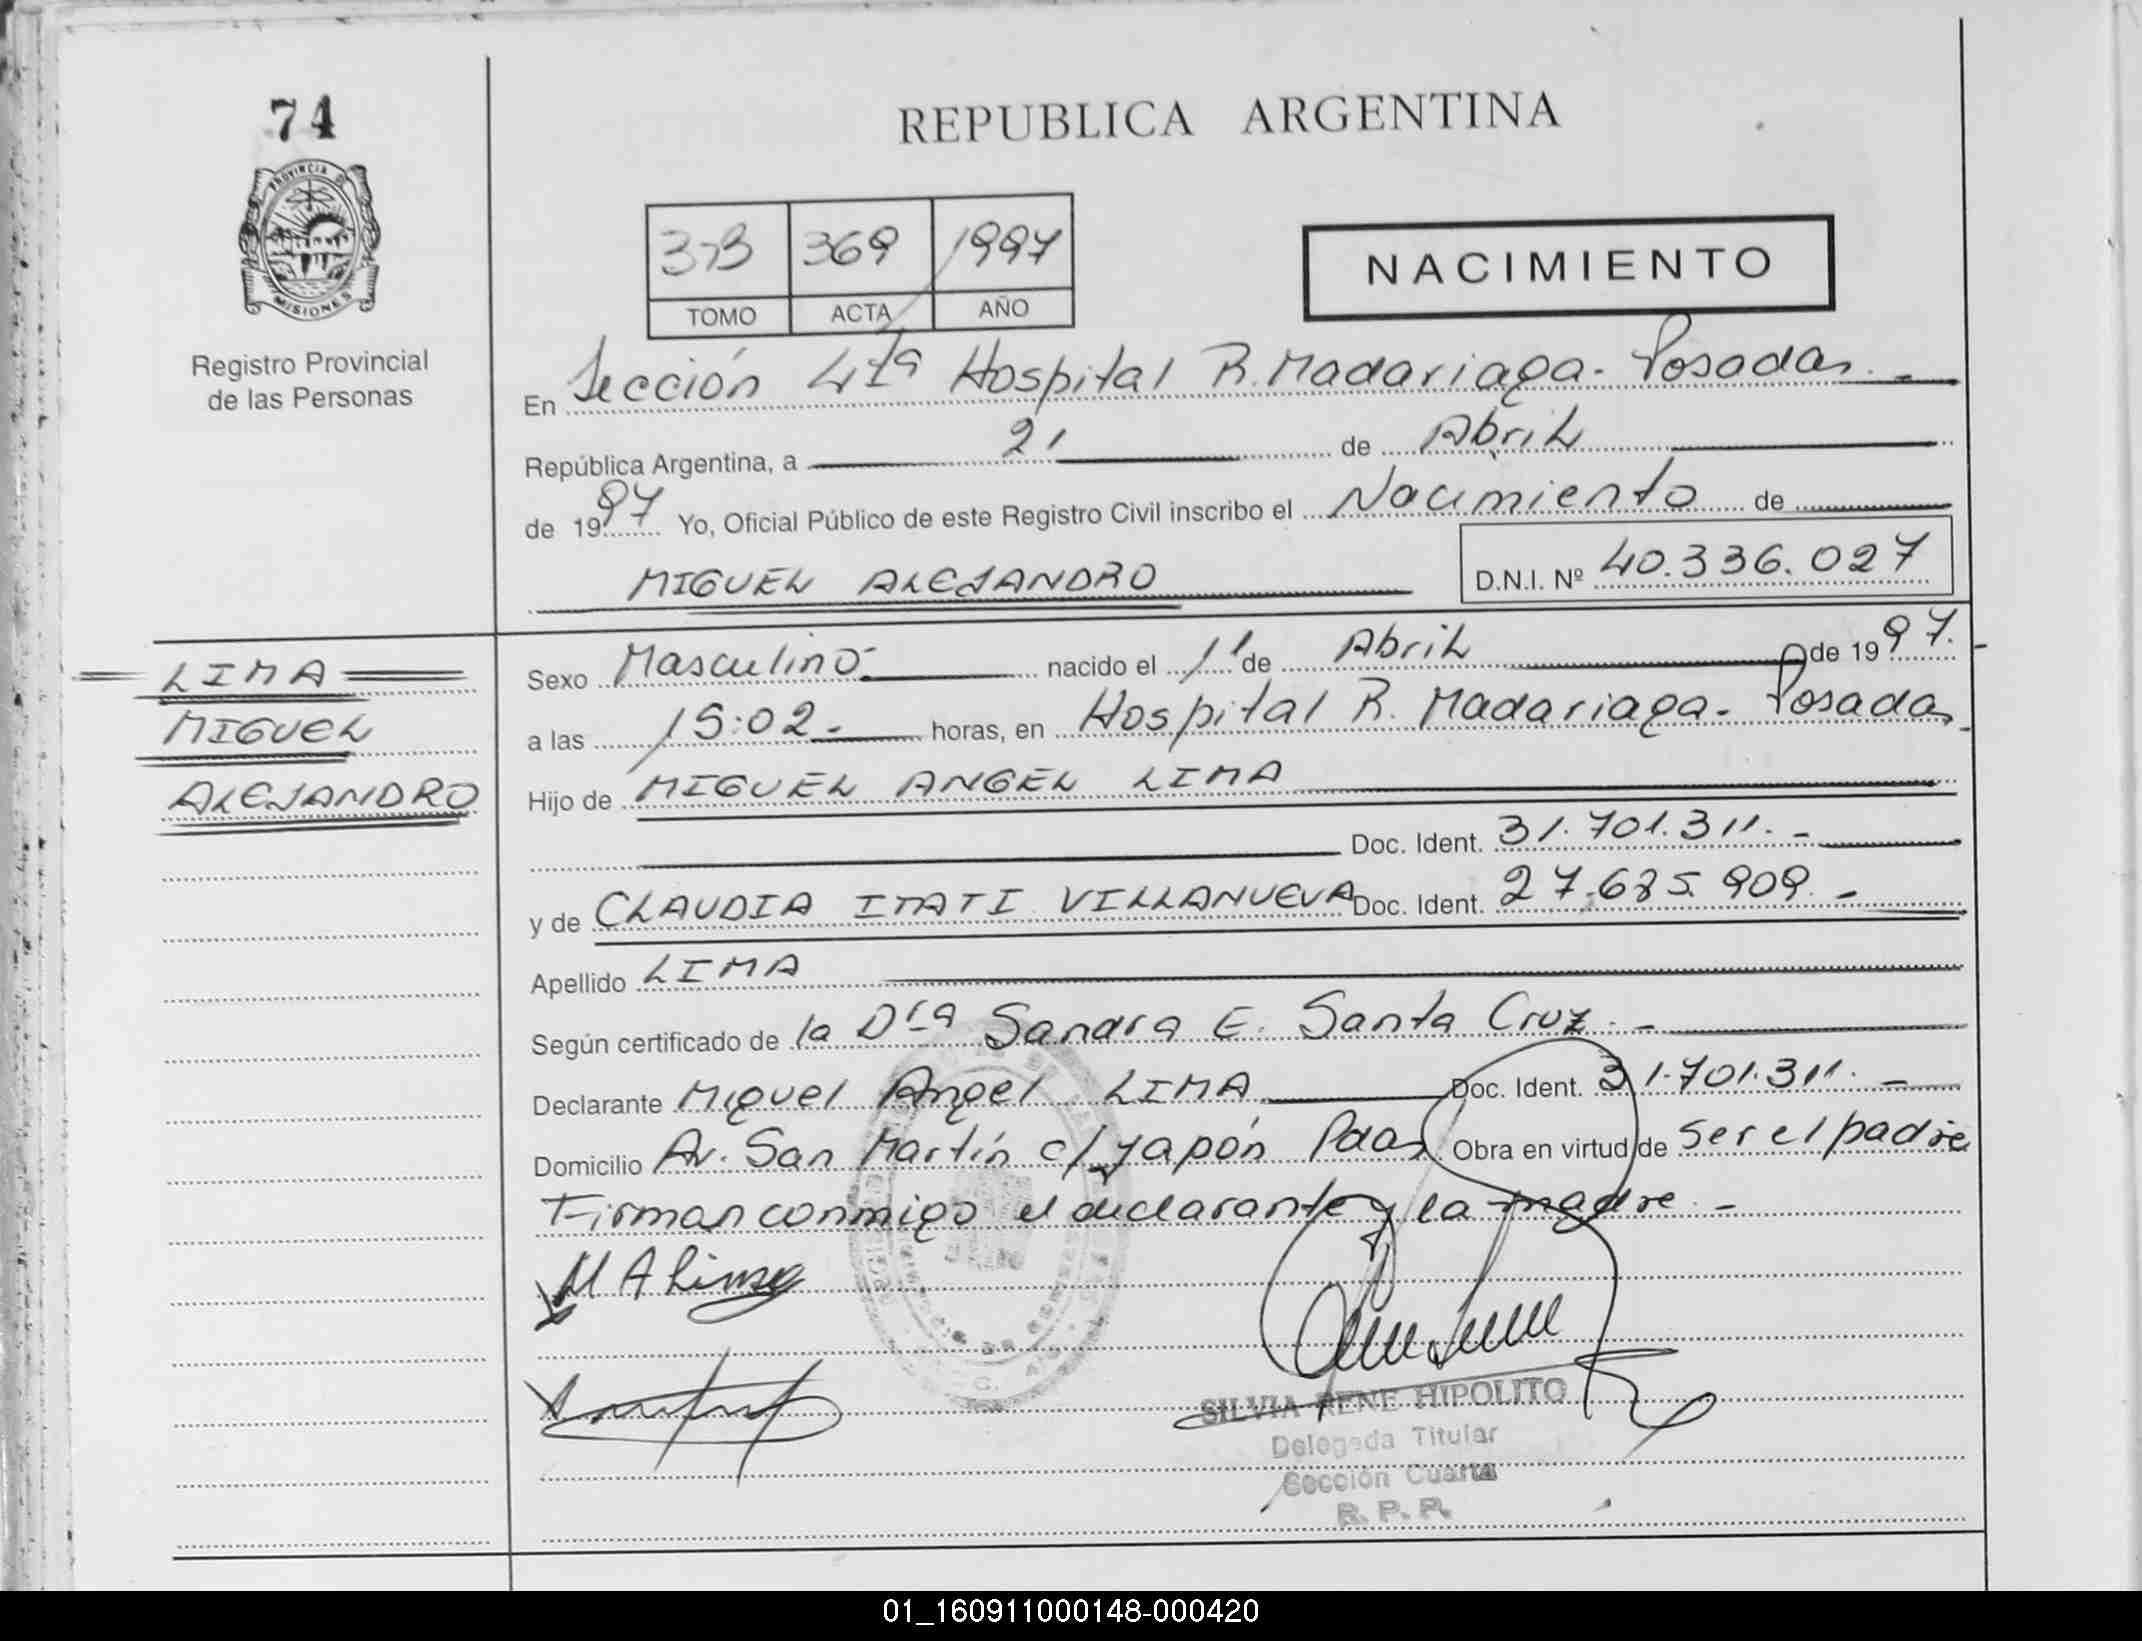 74
PROVINCIA DE
MISIONES
Registro Provincial
de las Personas
REPUBLICA ARGENTINA
3-B 369 1997
TOMO ACTA AÑO
NACIMIENTO
En Sección 4ta Hospital R. Madariaga - Posadas. -
República Argentina, a 21 de Abril
de 1997 Yo, Oficial Público de este Registro Civil inscribo el Nacimiento de
MIGUEL ALEJANDRO D.N.I. Nº 40.336.027
LIMA
MIGUEL
ALEJANDRO
Sexo Masculino.- nacido el 1º de Abril de 1997. -
a las 15:02.- horas, en Hospital R. Madariaga - Posadas -
Hijo de MIGUEL ANGEL LIMA
Doc. Ident. 31.701.311. -
y de CLAUDIA ITATI VILLANUEVA Doc. Ident. 27.685.909. -
Apellido LIMA
Según certificado de la Dra Sandra E. Santa Cruz. -
Declarante Miguel Angel LIMA Doc. Ident. 31.701.311. -
Domicilio Av. San Martín c/ Japón Pdas Obra en virtud de ser el padre
Firman conmigo el declarante y la madre. -
M A Lima
SILVIA RENE HIPOLITO
Delegada Titular
Sección Cuarta
R. P. P.
01_160911000148-000420